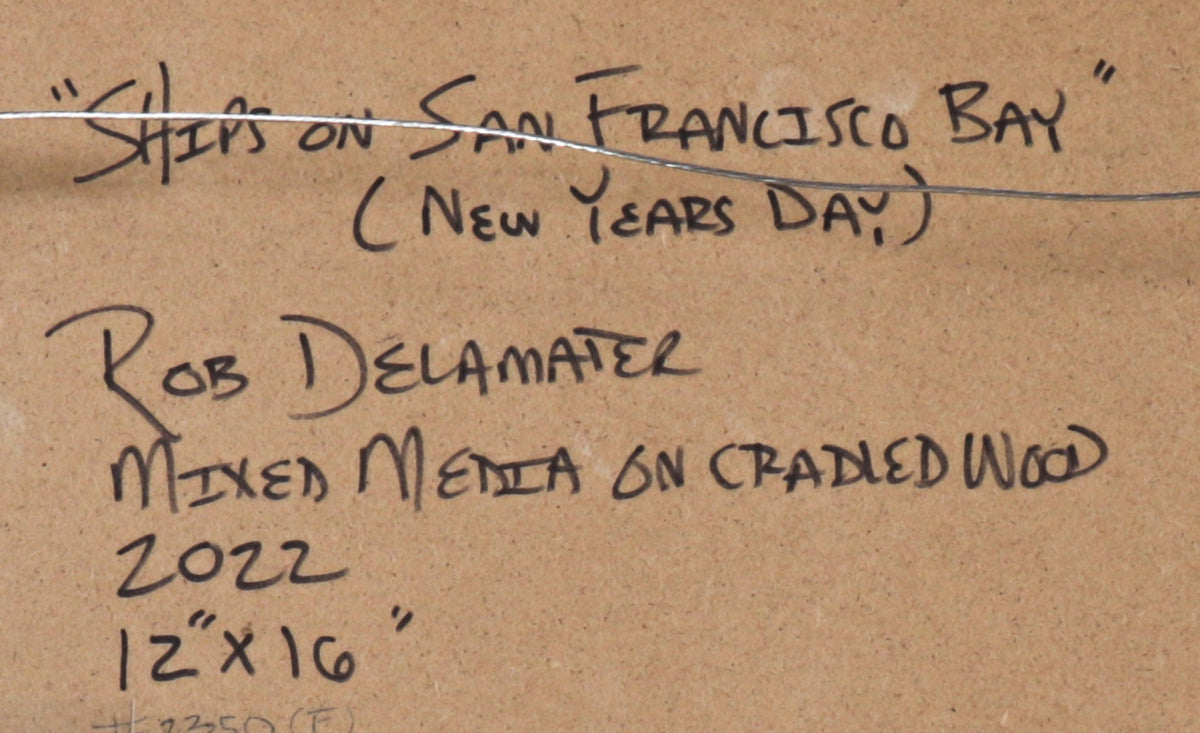 "SHIPS ON SAN FRANCISCO BAY"
(NEW YEARS DAY)
ROB DELAMATER
MIXED MEDIA ON CRADLED WOOD
2022
12" X 16"